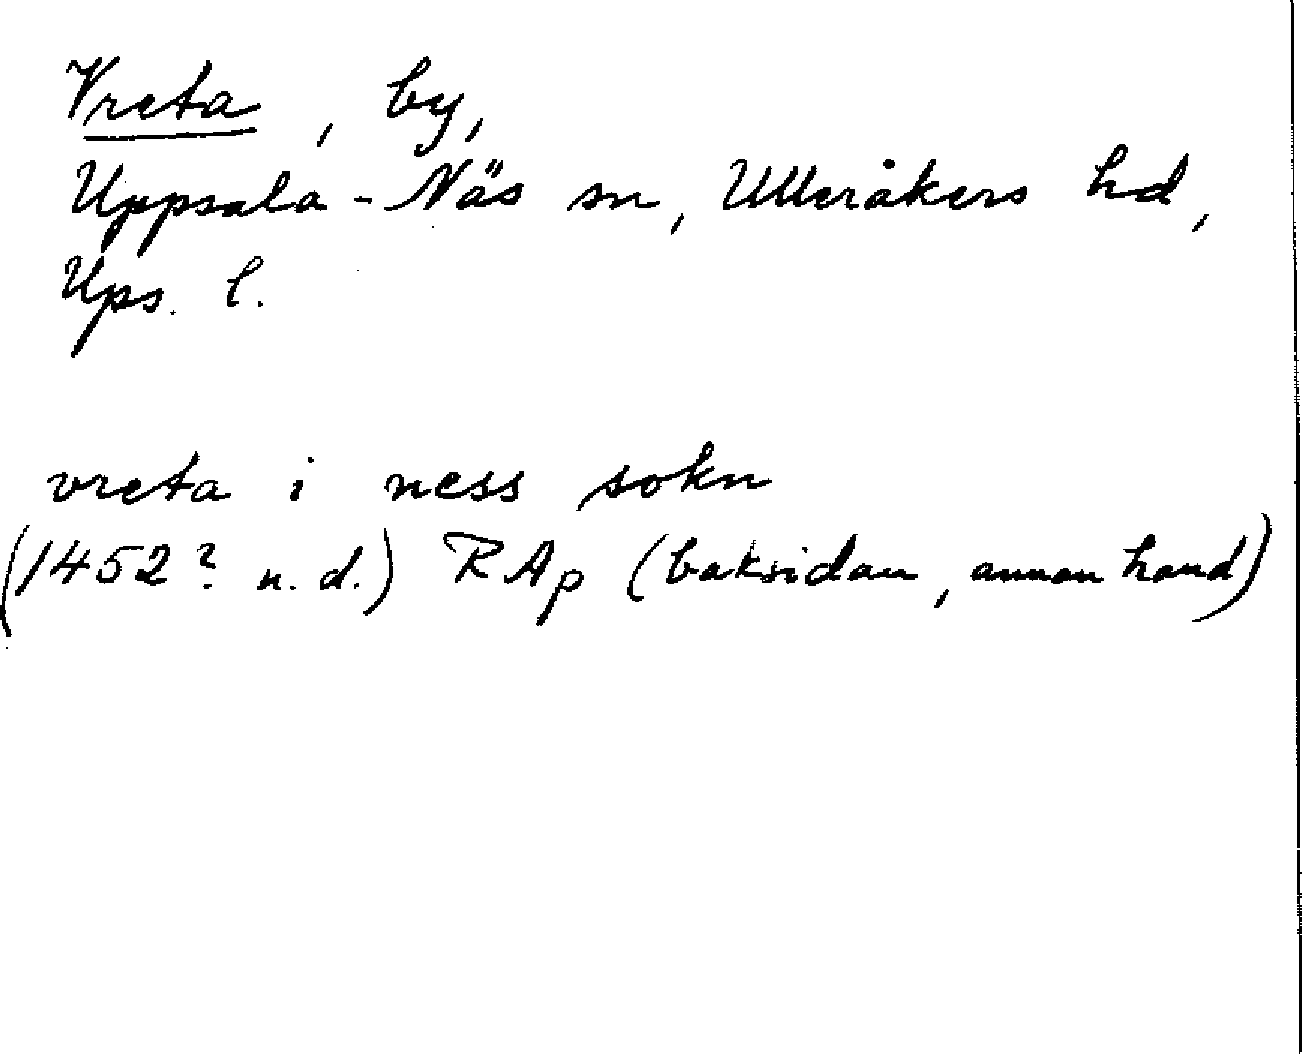 Vreta, by,
Uppsala-Näs sn, Ulleråkers hd,
Ups. l.
vreta i ness sokn
(1452? u. d.) RAp (baksidan, annan hand)